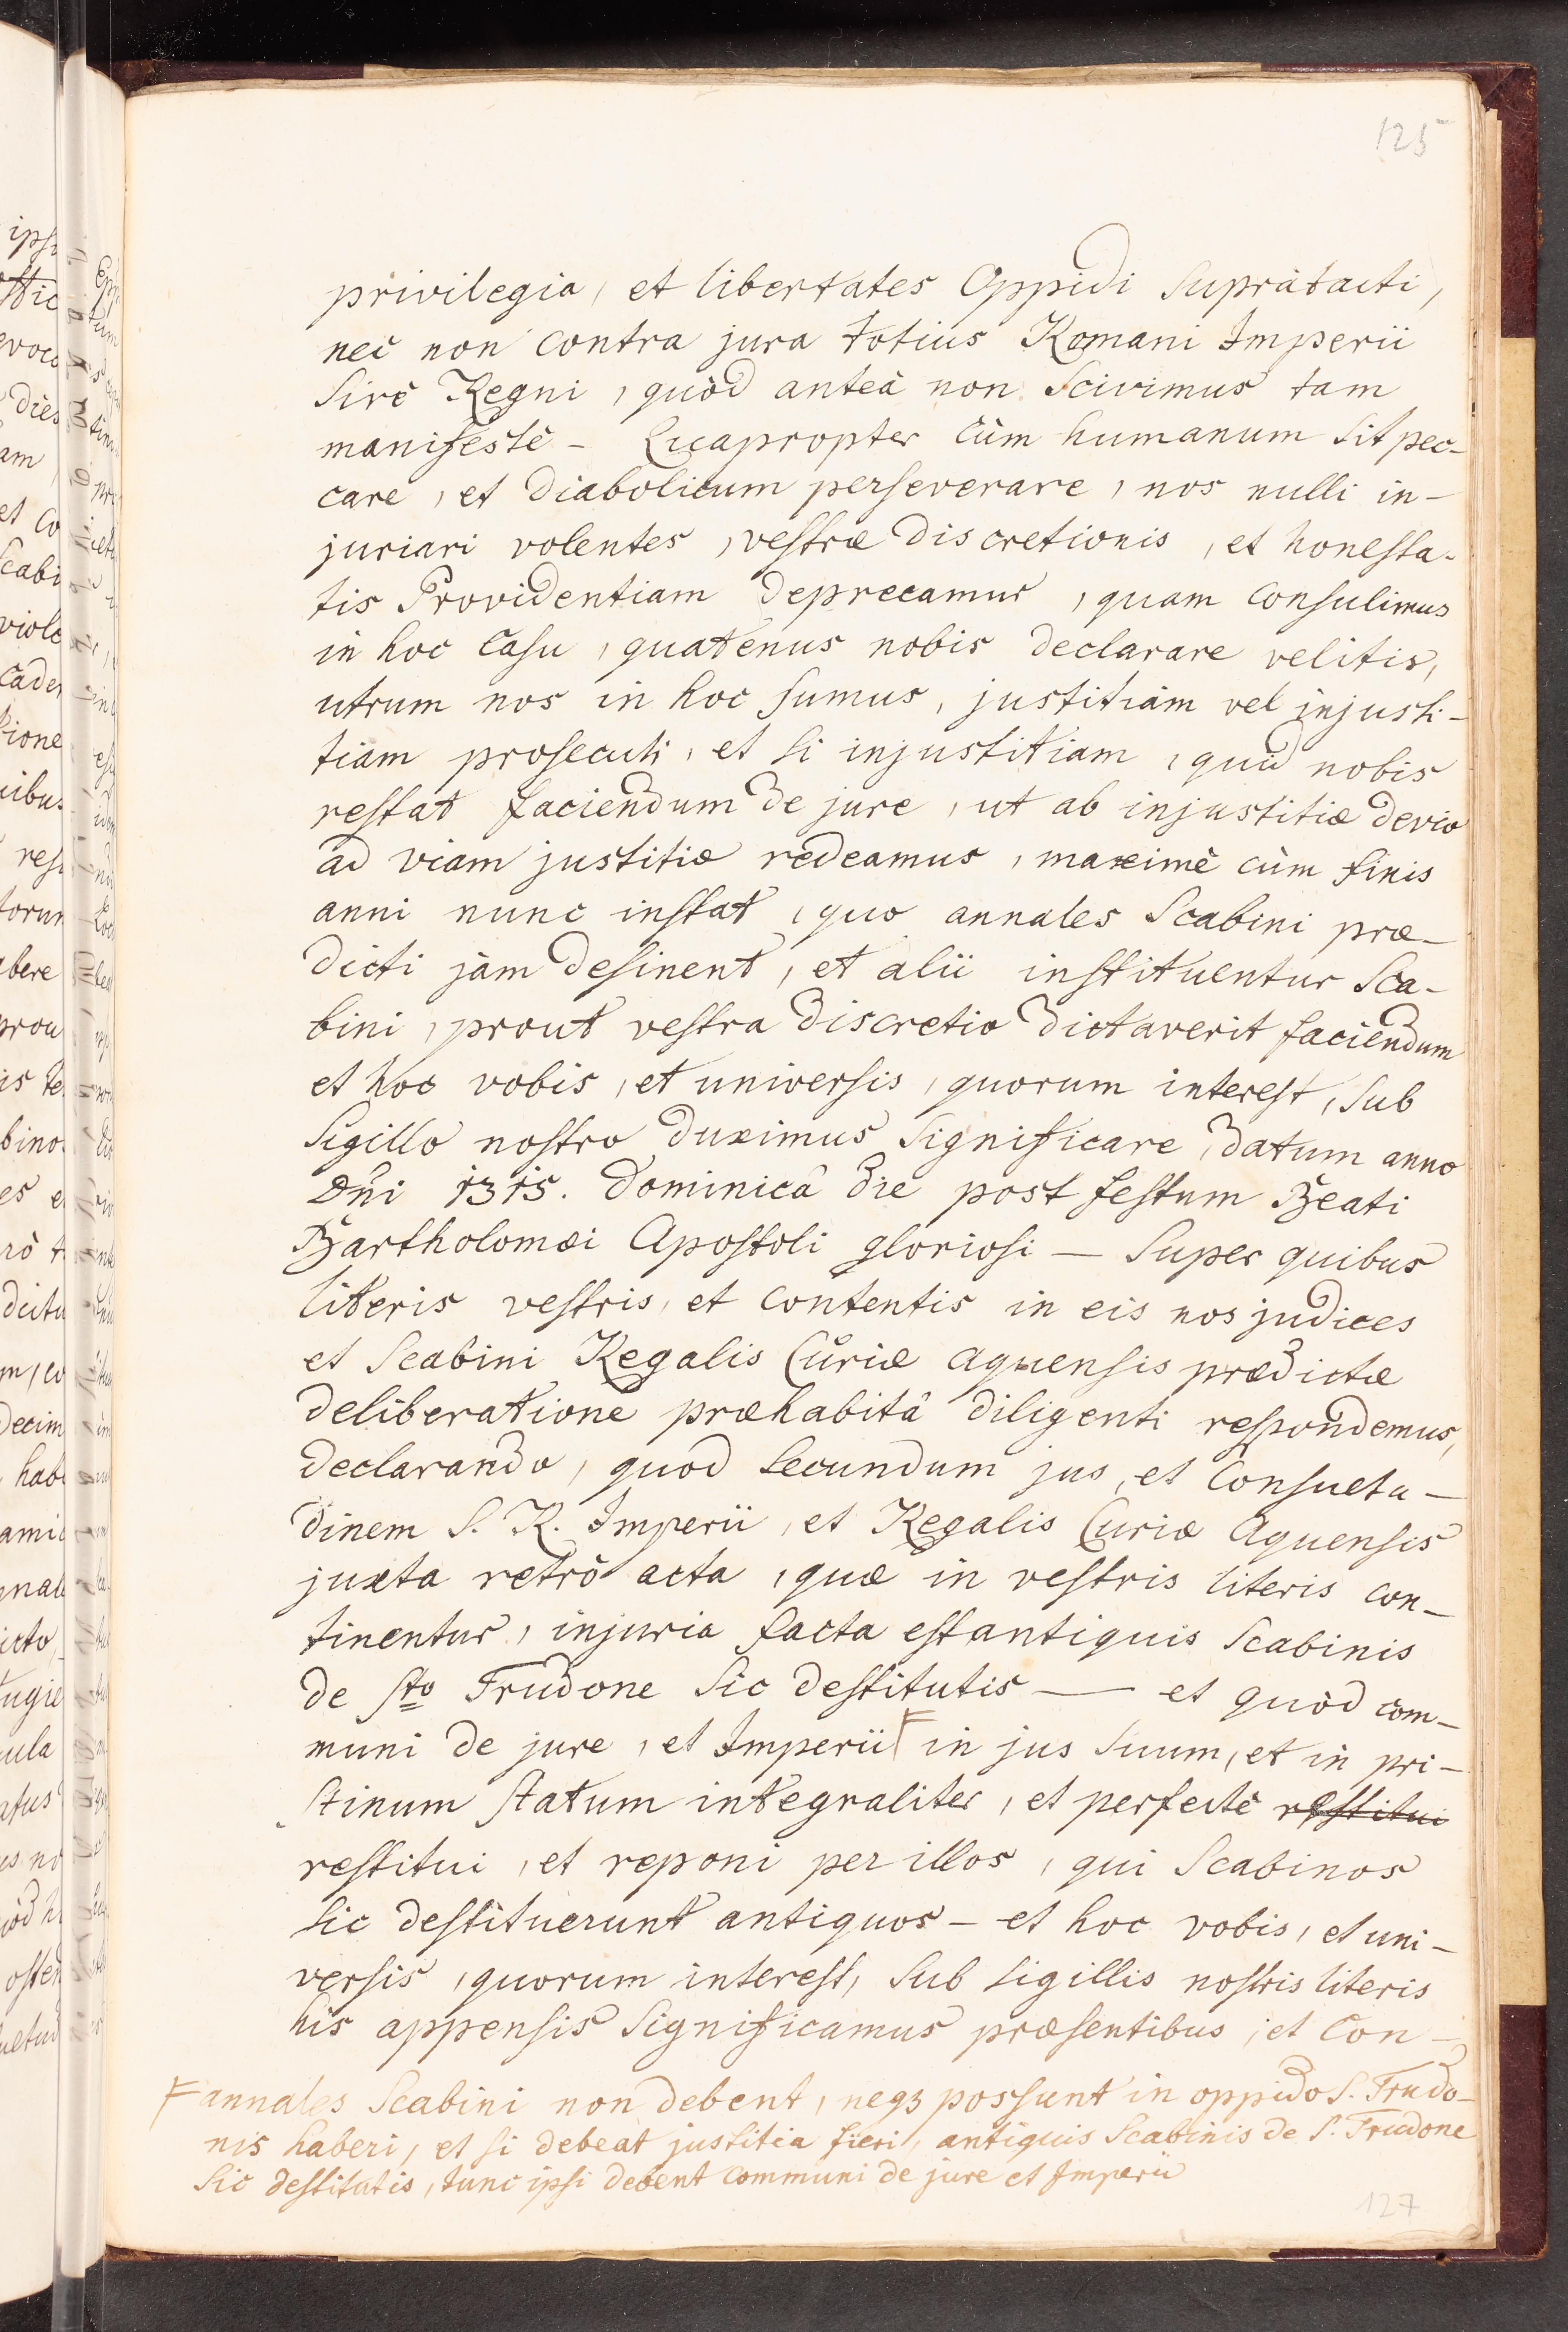 125
privilegia, et libertates Oppidi supràtacti,
nec non contra jura totius Romani Imperii
sivè Regni, quòd anteà non scivimus tam
manifestè - Quapropter cùm humanum sit pec-
care, et diabolicum perseverare, nos nulli in-
juriari volentes, vestræ discretionis, et honesta-
tis Providentiam deprecamur, quam consulimus
in hoc casu, quatenus nobis declarare velitis,
utrum nos in hoc sumus, justitiam vel injusti-
tiam prosecuti, et si injustitiam, quid nobis
restat faciendum de jure, ut ab injustitiæ devio
ad viam justitiæ redeamus, maximè cùm finis
anni nunc instat, quo annales Scabini præ-
dicti jàm desinent, et alii instituentur Sca-
bini, prout vestra discretio dictaverit faciendum
et hoc vobis, et universis, quorum interest, sub
sigillo nostro duximus significare, datum anno
Dñi 1315. Dominicâ die post festum Beati
Bartholomæi Apostoli gloriosi — Super quibus
literis vestris, et contentis in eis nos judices
et Scabini Regalis Curiæ aquensis prædictæ
deliberatione præhabitâ diligenti respondemus,
declarando, quod secundum jus, et consuetu-
dinem S. R. Imperii, et Regalis Curiæ Aquensis
juxta retrò acta, quæ in vestris literis con-
tinentur, injuria facta est antiquis Scabinis
de Sto Trudone sic destitutis — et quòd com-
muni de jure, et Imperii F in jus suum, et in pri-
stinum statum integraliter, et perfectè restitui
restitui, et reponi per illos, qui Scabinos
sic destituerunt antiquos - et hoc vobis, et uni-
versis, quorum interest, sub sigillis nostris literis
his appensis significamus præsentibus, et con-
F annales Scabini non debent, neqз possunt in oppido S. Trudo-
nis haberi, et si debeat justitia fieri, antiquis Scabinis de S. Trudone
sic destitutis, tunc ipsi debent communi de jure et Imperii
127